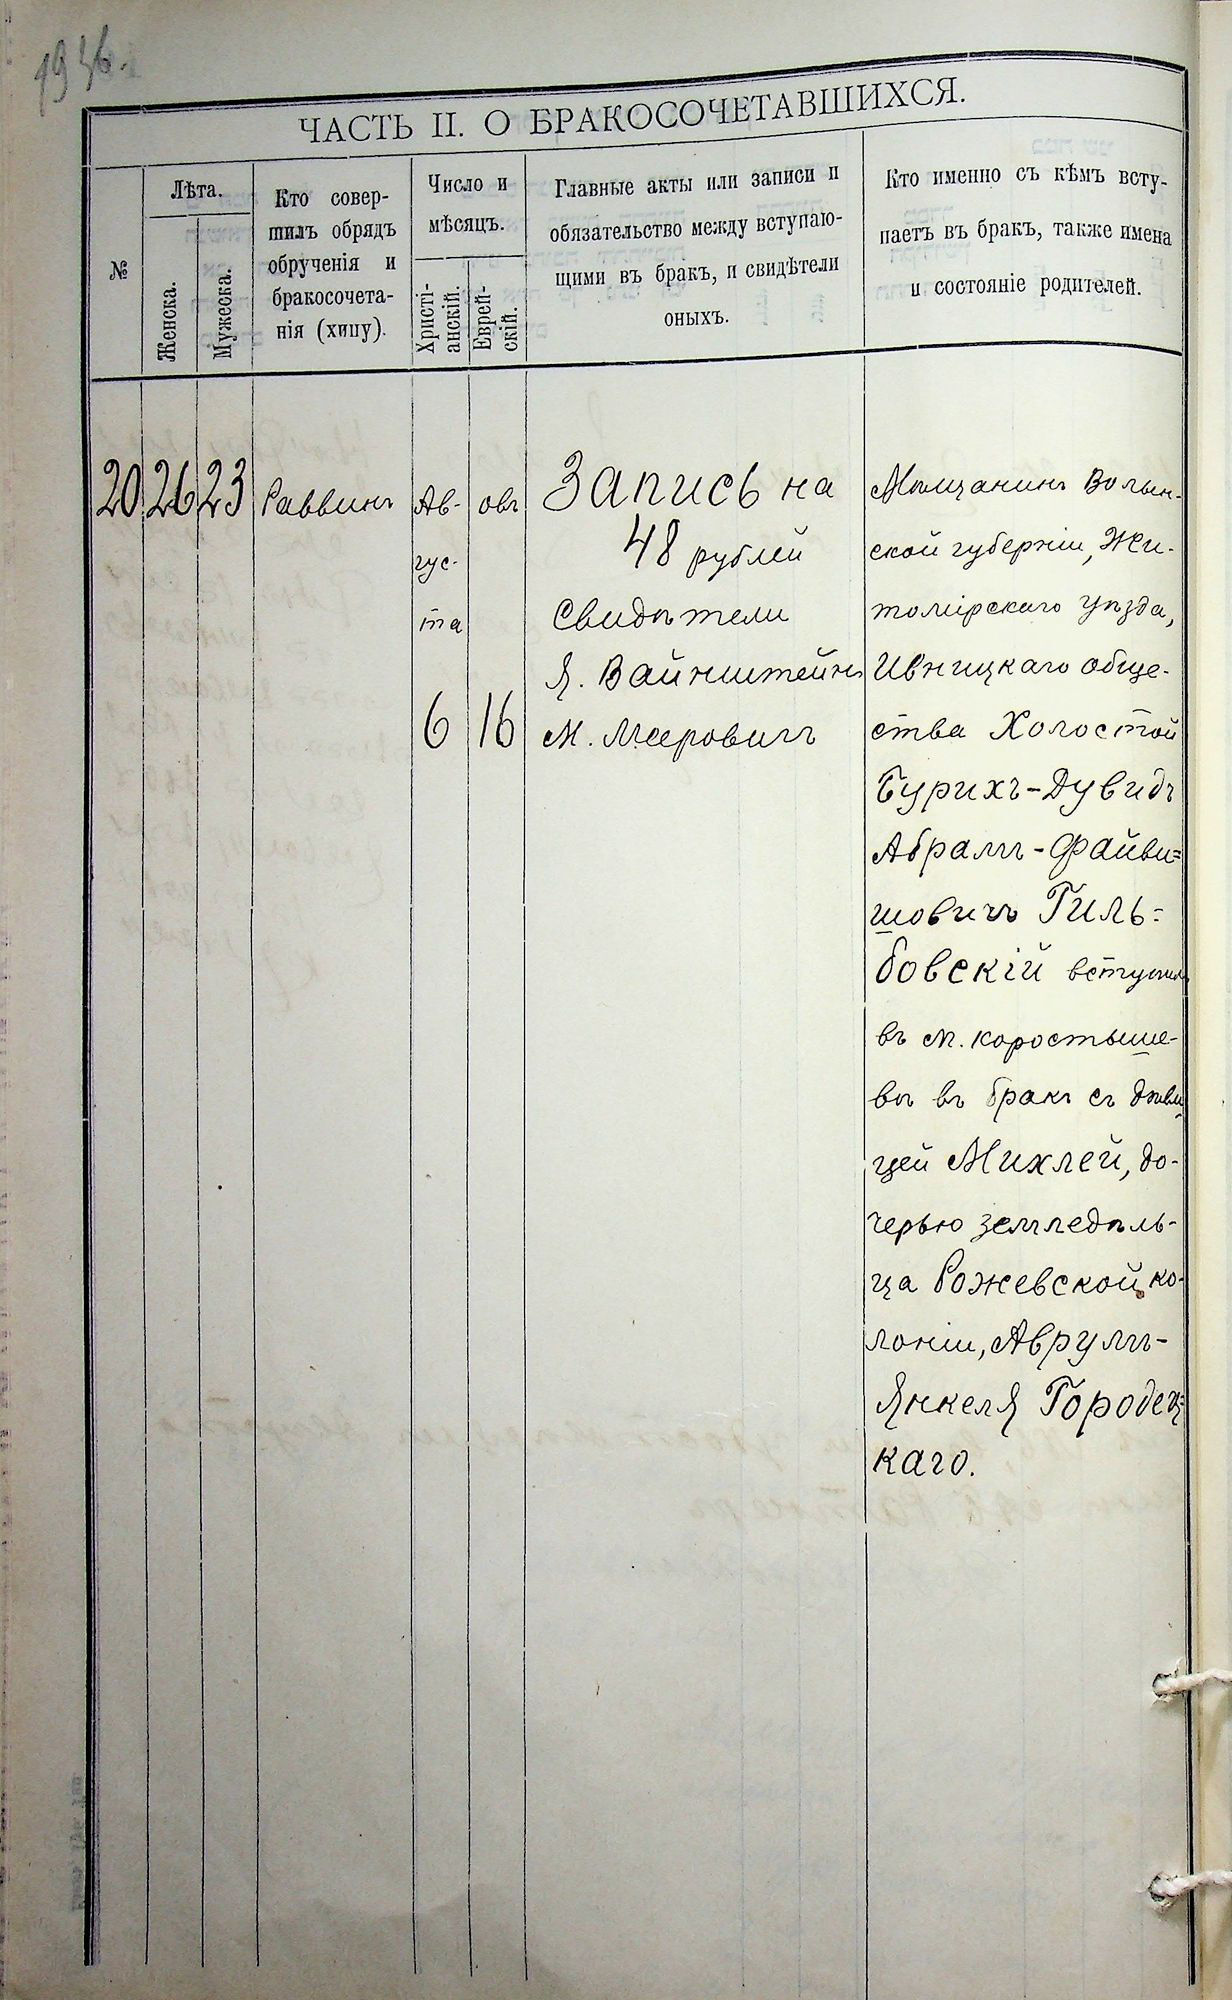 193б.
ЧАСТЬ II. О БРАКОСОЧЕТАВШИХСЯ.
№
Лѣта.
Женска.
Мужеска.
Кто совер-
шилъ обрядъ
обрученія и
бракосочета-
нія (хипу).
Число и
мѣсяцъ.
Христі-
анскій.
Еврей-
скій.
Главные акты или записи и
обязательство между вступаю-
щими въ бракъ, и свидѣтели
оныхъ.
Кто именно съ кѣмъ всту-
паетъ въ бракъ, также имена
и состояніе родителей.
20
26
23
Раввинъ
Ав-
гус-
та
6
овъ
16
Запись на
48 рублей
Свидѣтели
Я. Вайнштейнъ
М. Мееровичъ
Мѣщанинъ Волын-
ской губерніи, Жи-
томірскаго уѣзда,
Ивницкаго обще-
ства Холостой
Бурихъ-Дувидъ
Абрамъ-Файви=
шовичъ Гиль=
бовскій вступилъ
въ м. Коростыше-
вѣ въ бракъ съ дѣви
цей Михлей, до-
черью земледѣль-
ца Рожевской ко-
лоніи, Аврумъ-
Янкеля Городец=
каго.